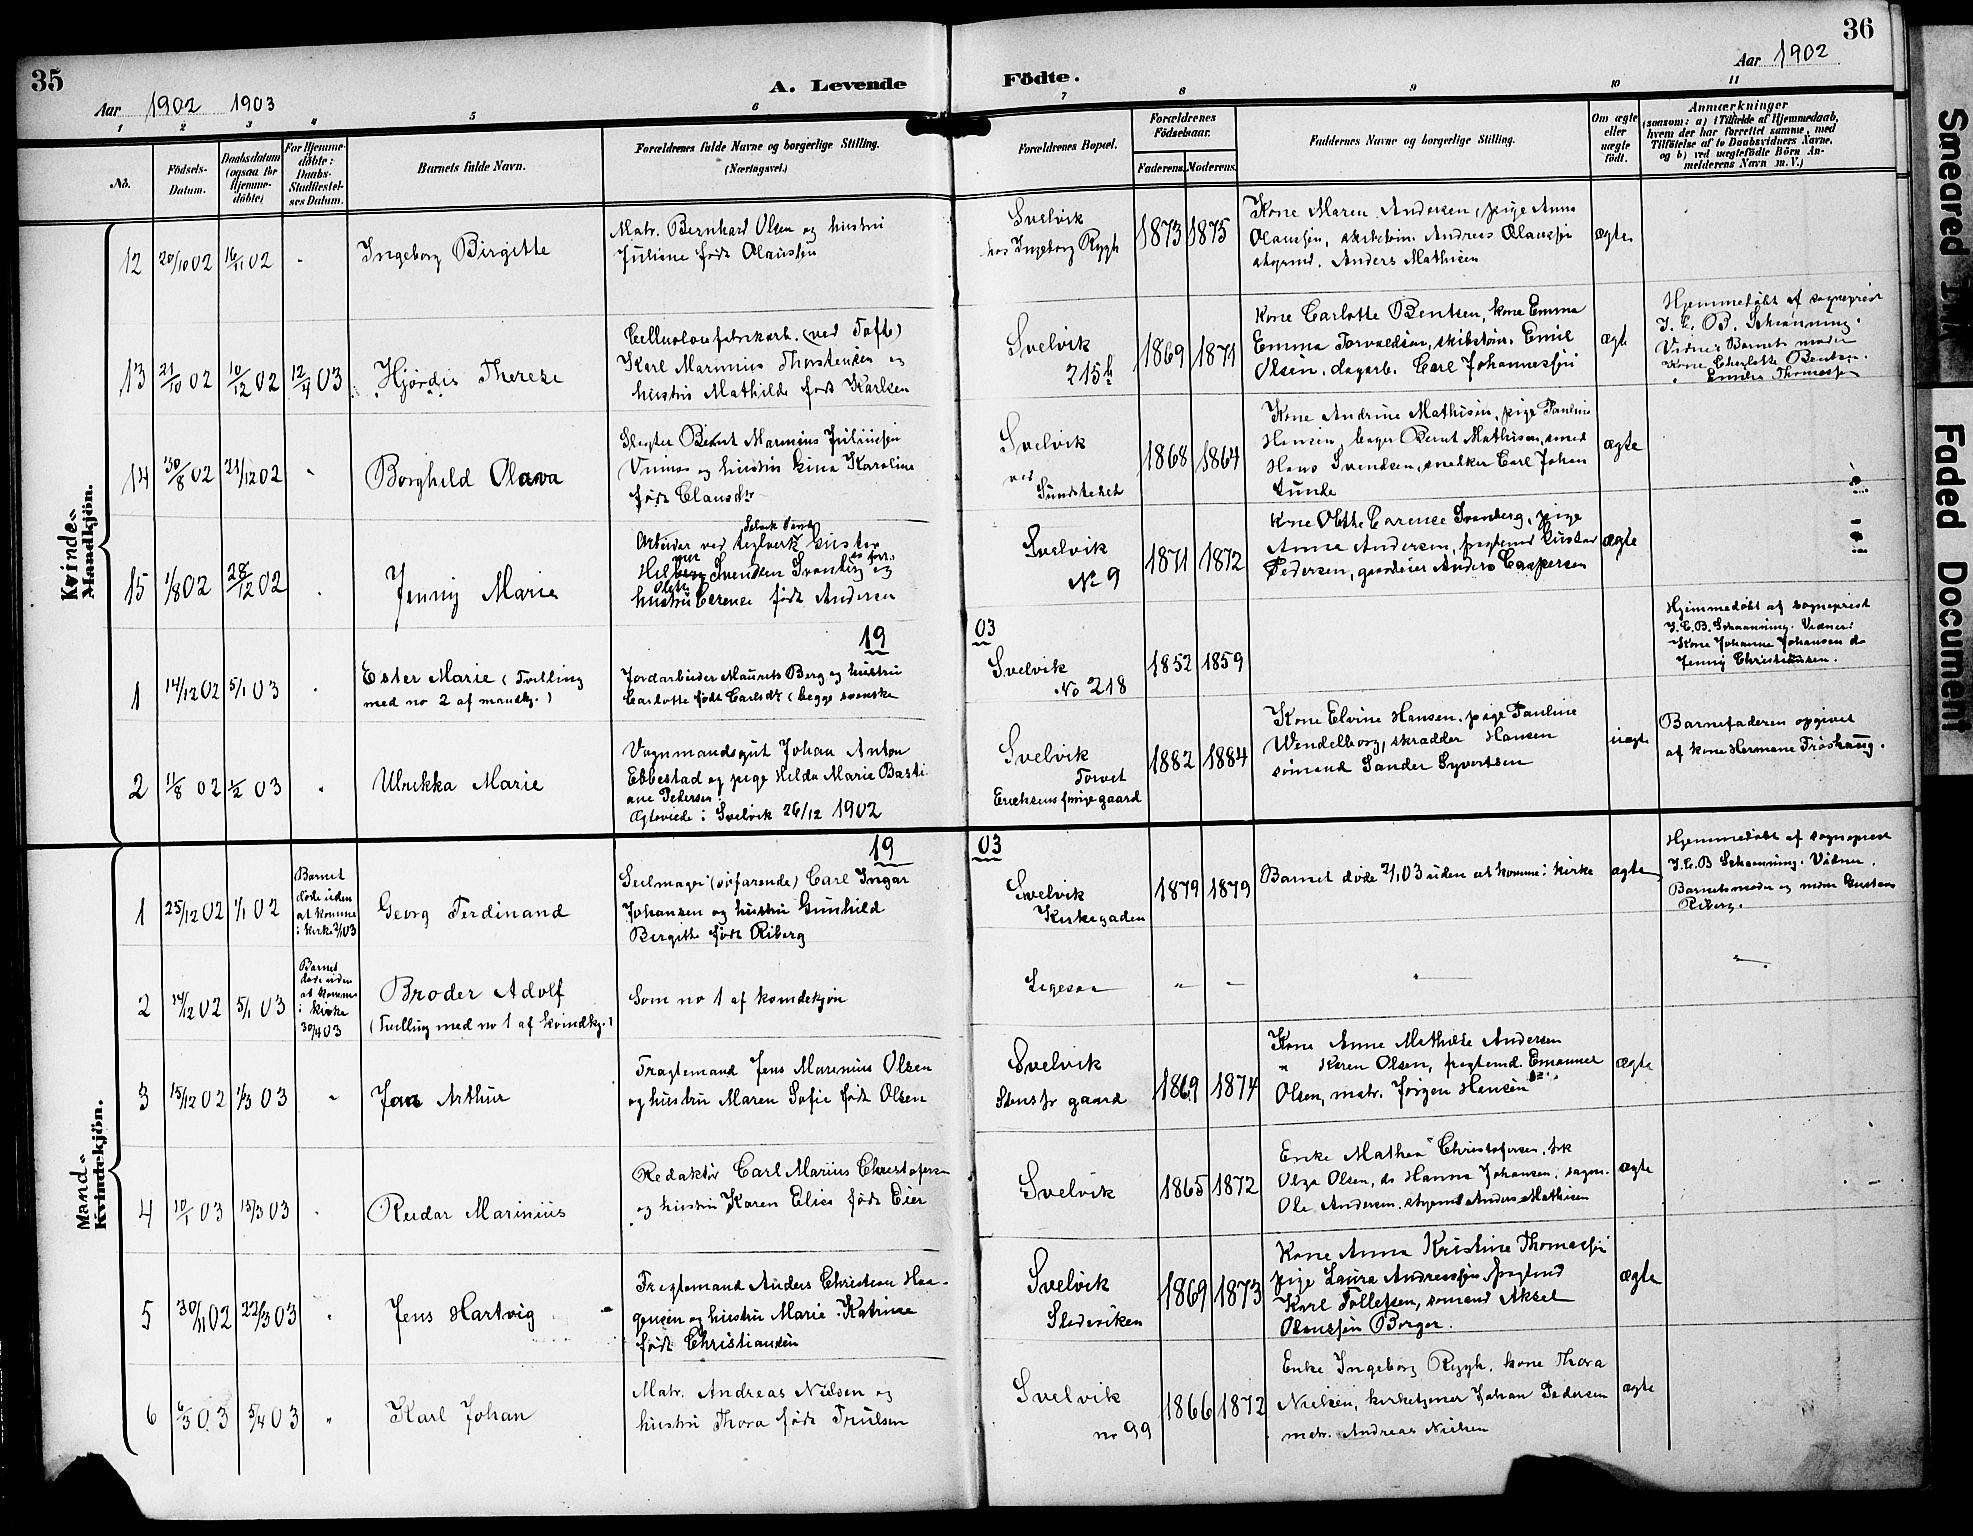 35
Aar 1902 1903
A. Levende
Födte.
Aar 1902
36
1 2 3 4 5 6 7 8 9 10 11
No.
Födsels-
Datum.
Daabsdatum
(ogsaa for
Hjemme-
døbte)
For Hjemme-
døbte:
Daabs-
Stadfæstel-
ses Datum.
Barnets fulde Navn.
Forældrenes fulde Navne og borgerlige Stilling.
(Næringsvei.)
Forældrenes Bopæl.
Forældrenes
Födselsaar.
Faderens. Moderens.
Faddernes Navne og borgerlige Stilling.
Om ægte
eller
uægte
födt.
Anmærkninger
(saasom: a) i Tilfælde af Hjemmedaab,
hvem der har forrettet samme, med
Tilföielse af to Daabsvidners Navne,
og b) ved uægtefödte Börn An-
melderens Navn m. V.)
Kvinde-
Mandkjön.
12 20/10 02 16/11 02 -
Ingeborg Birgitte
Matr. Bernhard Olsen og hustru
Juliane født Olaussen
Svelvik
hos Ingeborg Rygh
1873 1875
Kone Maren Andersen, pige Anna
Olaussen, Andreas Olaussen
Anders Mathisen
ægte
13 21/10 02 10/12 02 12/4 03
Hjørdis Therese
Celluolosefabrikarb. (ved Tofte)
Karl Marinius Thorstensen og
hustru Mathilde født Karlsen
Svelvik
215 b
1869 1871
Kone Carlotte Bentsen, kone Emma
Emma Torvaldsen, skibstøm. Emil
Olsen, dagarb. Carl Johannessen
ægte
Hjemmedøbt af sogneprest
J. C. B. Schanning.
Vidner Barnets moder
Kone Charlotte Bentsen.
14 30/8 02 21/12 02 -
Borghild Olava
Slagter Bernt Marinius Juliussen
og hustru Lina Karoline
født Clausdtr
Svelvik
ved
Sundstedet
1868 1864
Kone Andrine Mathisen, pige Pauline
Hansen, bager Bernt Mathisen, smed
Hans Svendsen, snedker Carl Johan
Lunde
ægte
15 1/8 02 28/12 02 .
Jenny Marie
Arbeider ved teglverk Gustav
Svendsen og
hustru Cerense født Andersen
Svelvik
No 9
1871 1872
Kone Svenberg, pige
Anna Andersen, fragtemd Gustav
Pedersen, gaardeier Anders Caspersen
ægte
19 03
1 14/12 02 5/1 03 .
Ester Marie (Tvilling
med no 2 af mandkj.)
Jordarbeider Maurits Berg og hustru
Carlotte født Carlsdtr (begge svenske
Svelvik
No 218
1852 1859
Hjemmedøbt af sogneprest
J. C. B. Schanning. Vidner:
Kone Johanne Johansen do
Jenny Christiansen.
2 11/8 02 1/2 03 .
Ulrikka Marie
Vognmandsgut Johan Anton
Ebbestad og pige Helda Marie Basti
ane Pedersen
Ægteviede i Svelvik 26/12 1902
Svelvik
Torvet
Erichsens forrige gaard
1882 1884
Kone Elvine Hansen, pige Pauline
Wendelborg, skrædder Hansen
sømand Sander Syvertsen
uægte
Barnefaderen opgivet
af kone Hermane Frøshaug.
19 03
Mand-
Kvindekjön.
1 25/12 02 1/1 02
Barnet
døde uden
at komme
i kirke 2/1 03
Georg Ferdinand
Seilmager (søfarende) Carl Ingar
Johansen og hustru Gunhild
Birgitte født Riberg
Svelvik
Kirkegaden
1879 1879
Barnet døde 2/1 03 uden at komme i kirke
ægte
Hjemmedøbt af sogneprest
J. C. B Schanning. Vidner.
Barnets moder og mdm Gustava
Riberg.
2 14/12 02 5/1 03
Barnet
døde uden
at komme
i kirke
30/4 03
Broder Adolf
(Tvilling med no 1 af kvindkj.)
Som no 1 af kvindekjøn
Ligesaa
" -
"
"
3 15/12 02 1/3 03 -
Jan Arthur
Fragtemand Jens Marinius Olsen
og hustru Maren Sofie født Olsen
Svelvik
gaard
1869 1874
Kone Anne Mathilde Andersen
" Karen Olsen, fragtemd. Emanuel
Olsen, matr. Jørgen Hansen
ægte
4 10/1 03 15/3 03 .
Reidar Marinius
Redaktør Carl Marius Christofersen
og hustru Karen Elise født Eier
Svelvik
1865 1872
Enke Mathea Christofersen, frk
Olga Olsen, do Hanna Johansen,
Ole Andersen, Anders Mathisen
ægte
5 30/11 02 22/3 03 .
Jens Hartvig -
Fragtemand Anders Christian Haa-
gensen og hustru Marie Katrine
født Christiansen
Svelvik
Sledeviken
1869 1873
Kone Anna Kristine Thomassen
pige Laura Andreassen, fragtmd
Karl Tollefsen, sømand Aksel
Olaussen Borger.
ægte
6 6/3 03 5/4 03 "
Karl Johan
Matr. Andreas Nielsen og
hustru Thora født Trulsen
Svelvik
no 99
1866 1872
Enke Ingeborg Rygh, kone Thora
Nielsen, kirketjener Johan Pedersen
matr. Andreas Nielsen
ægte
Smeared Ink
Faded Document